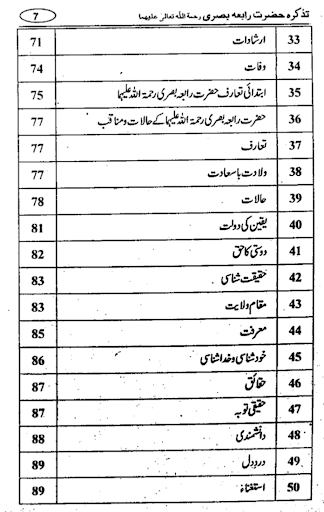 تذکرہ حضرت رابعہ بصری رحمۃ اللہ تعالیٰ علیہما 7
33 ارشادات 71
34 وفات 74
35 ابتدائی تعارف حضرت رابعہ بصری رحمۃ اللہ علیہما 75
36 حضرت رابعہ بصری رحمۃ اللہ علیہما کے حالات و مناقب 77
37 تعارف 77
38 ولادت باسعادت 77
39 حالات 78
40 یقین کی دولت 81
41 دوستی کا حق 82
42 حقیقت شناسی 83
43 مقام ولایت 83
44 معرفت 85
45 خود شناسی و خدا شناسی 86
46 حقائق 87
47 حقیقی توبہ 87
48 دانشمندی 88
49 درد دل 89
50 استغناء 89